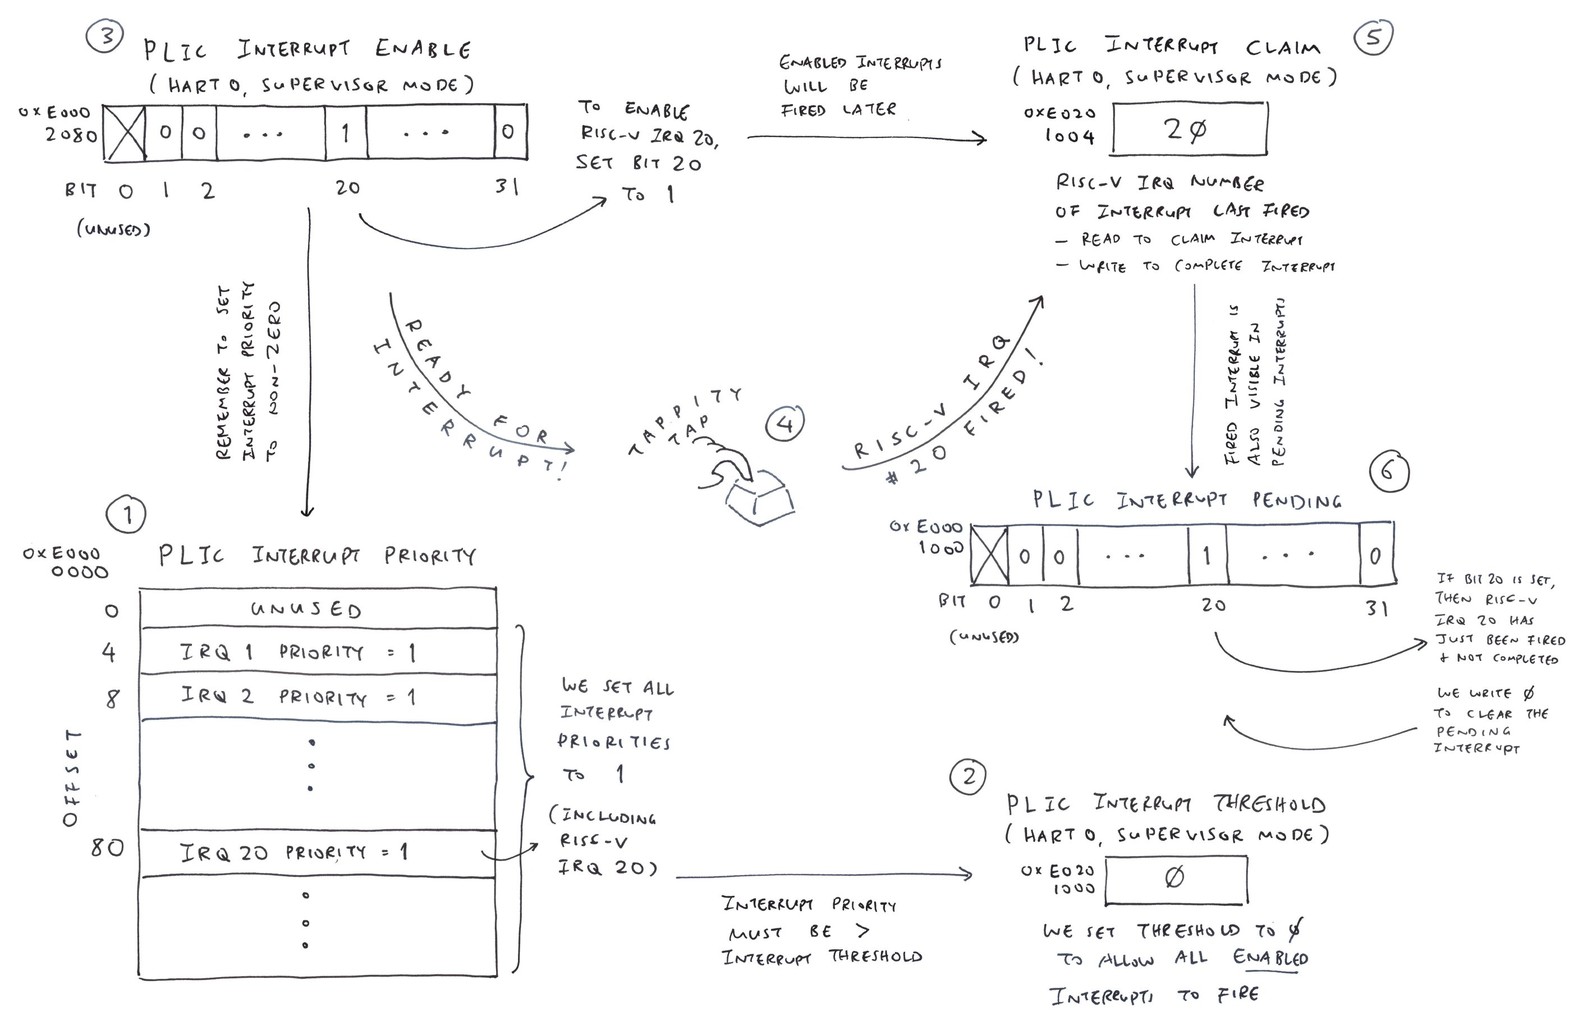 3
PLIC INTERRUPT ENABLE
(HART 0, SUPERVISOR MODE)
0xE000
2080
0 0 ... 1 ... 0
BIT 0 1 2 20 31
(UNUSED)
TO ENABLE
RISC-V IRQ 20,
SET BIT 20
TO 1
ENABLED INTERRUPTS
WILL BE
FIRED LATER
PLIC INTERRUPT CLAIM
5
(HART 0, SUPERVISOR MODE)
0xE020
1004
20
RISC-V IRQ NUMBER
OF INTERRUPT LAST FIRED
- READ TO CLAIM INTERRUPT
- WRITE TO COMPLETE INTERRUPT
REMEMBER TO SET
INTERRUPT PRIORITY
TO NON-ZERO
READY FOR
INTERRUPT!
TAPPITY
TAP
4
RISC-V IRQ
#20 FIRED!
FIRED INTERRUPT IS
ALSO VISIBLE IN
PENDING INTERRUPTS
6
PLIC INTERRUPT PENDING
0xE000
1000
0 0 ... 1 ... 0
BIT 0 1 2 20 31
(UNUSED)
IF BIT 20 IS SET,
THEN RISC-V
IRQ 20 HAS
JUST BEEN FIRED
+ NOT COMPLETED
WE WRITE 0
TO CLEAR THE
PENDING
INTERRUPT
1
0xE000
0000
PLIC INTERRUPT PRIORITY
0 UNUSED
4 IRQ 1 PRIORITY = 1
8 IRQ 2 PRIORITY = 1
OFFSET
80 IRQ 20 PRIORITY = 1
WE SET ALL
INTERRUPT
PRIORITIES
TO 1
(INCLUDING
RISC-V
IRQ 20)
INTERRUPT PRIORITY
MUST BE >
INTERRUPT THRESHOLD
2
PLIC INTERRUPT THRESHOLD
(HART 0, SUPERVISOR MODE)
0xE020
1000
0
WE SET THRESHOLD TO 0
TO ALLOW ALL ENABLED
INTERRUPTS TO FIRE